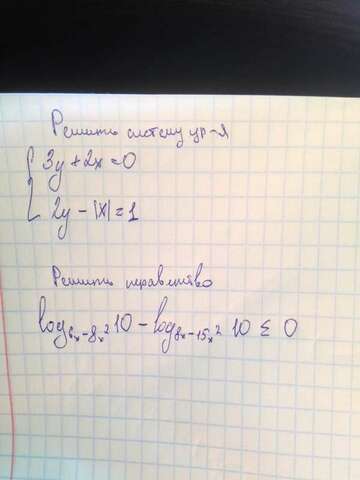 Решить систему ур-я
3y + 2x = 0
2y - |x| = 1
Решить неравенство
log₆ₓ₋₈ₓ² 10 - log₈ₓ₋₁₅ₓ² 10 ≤ 0